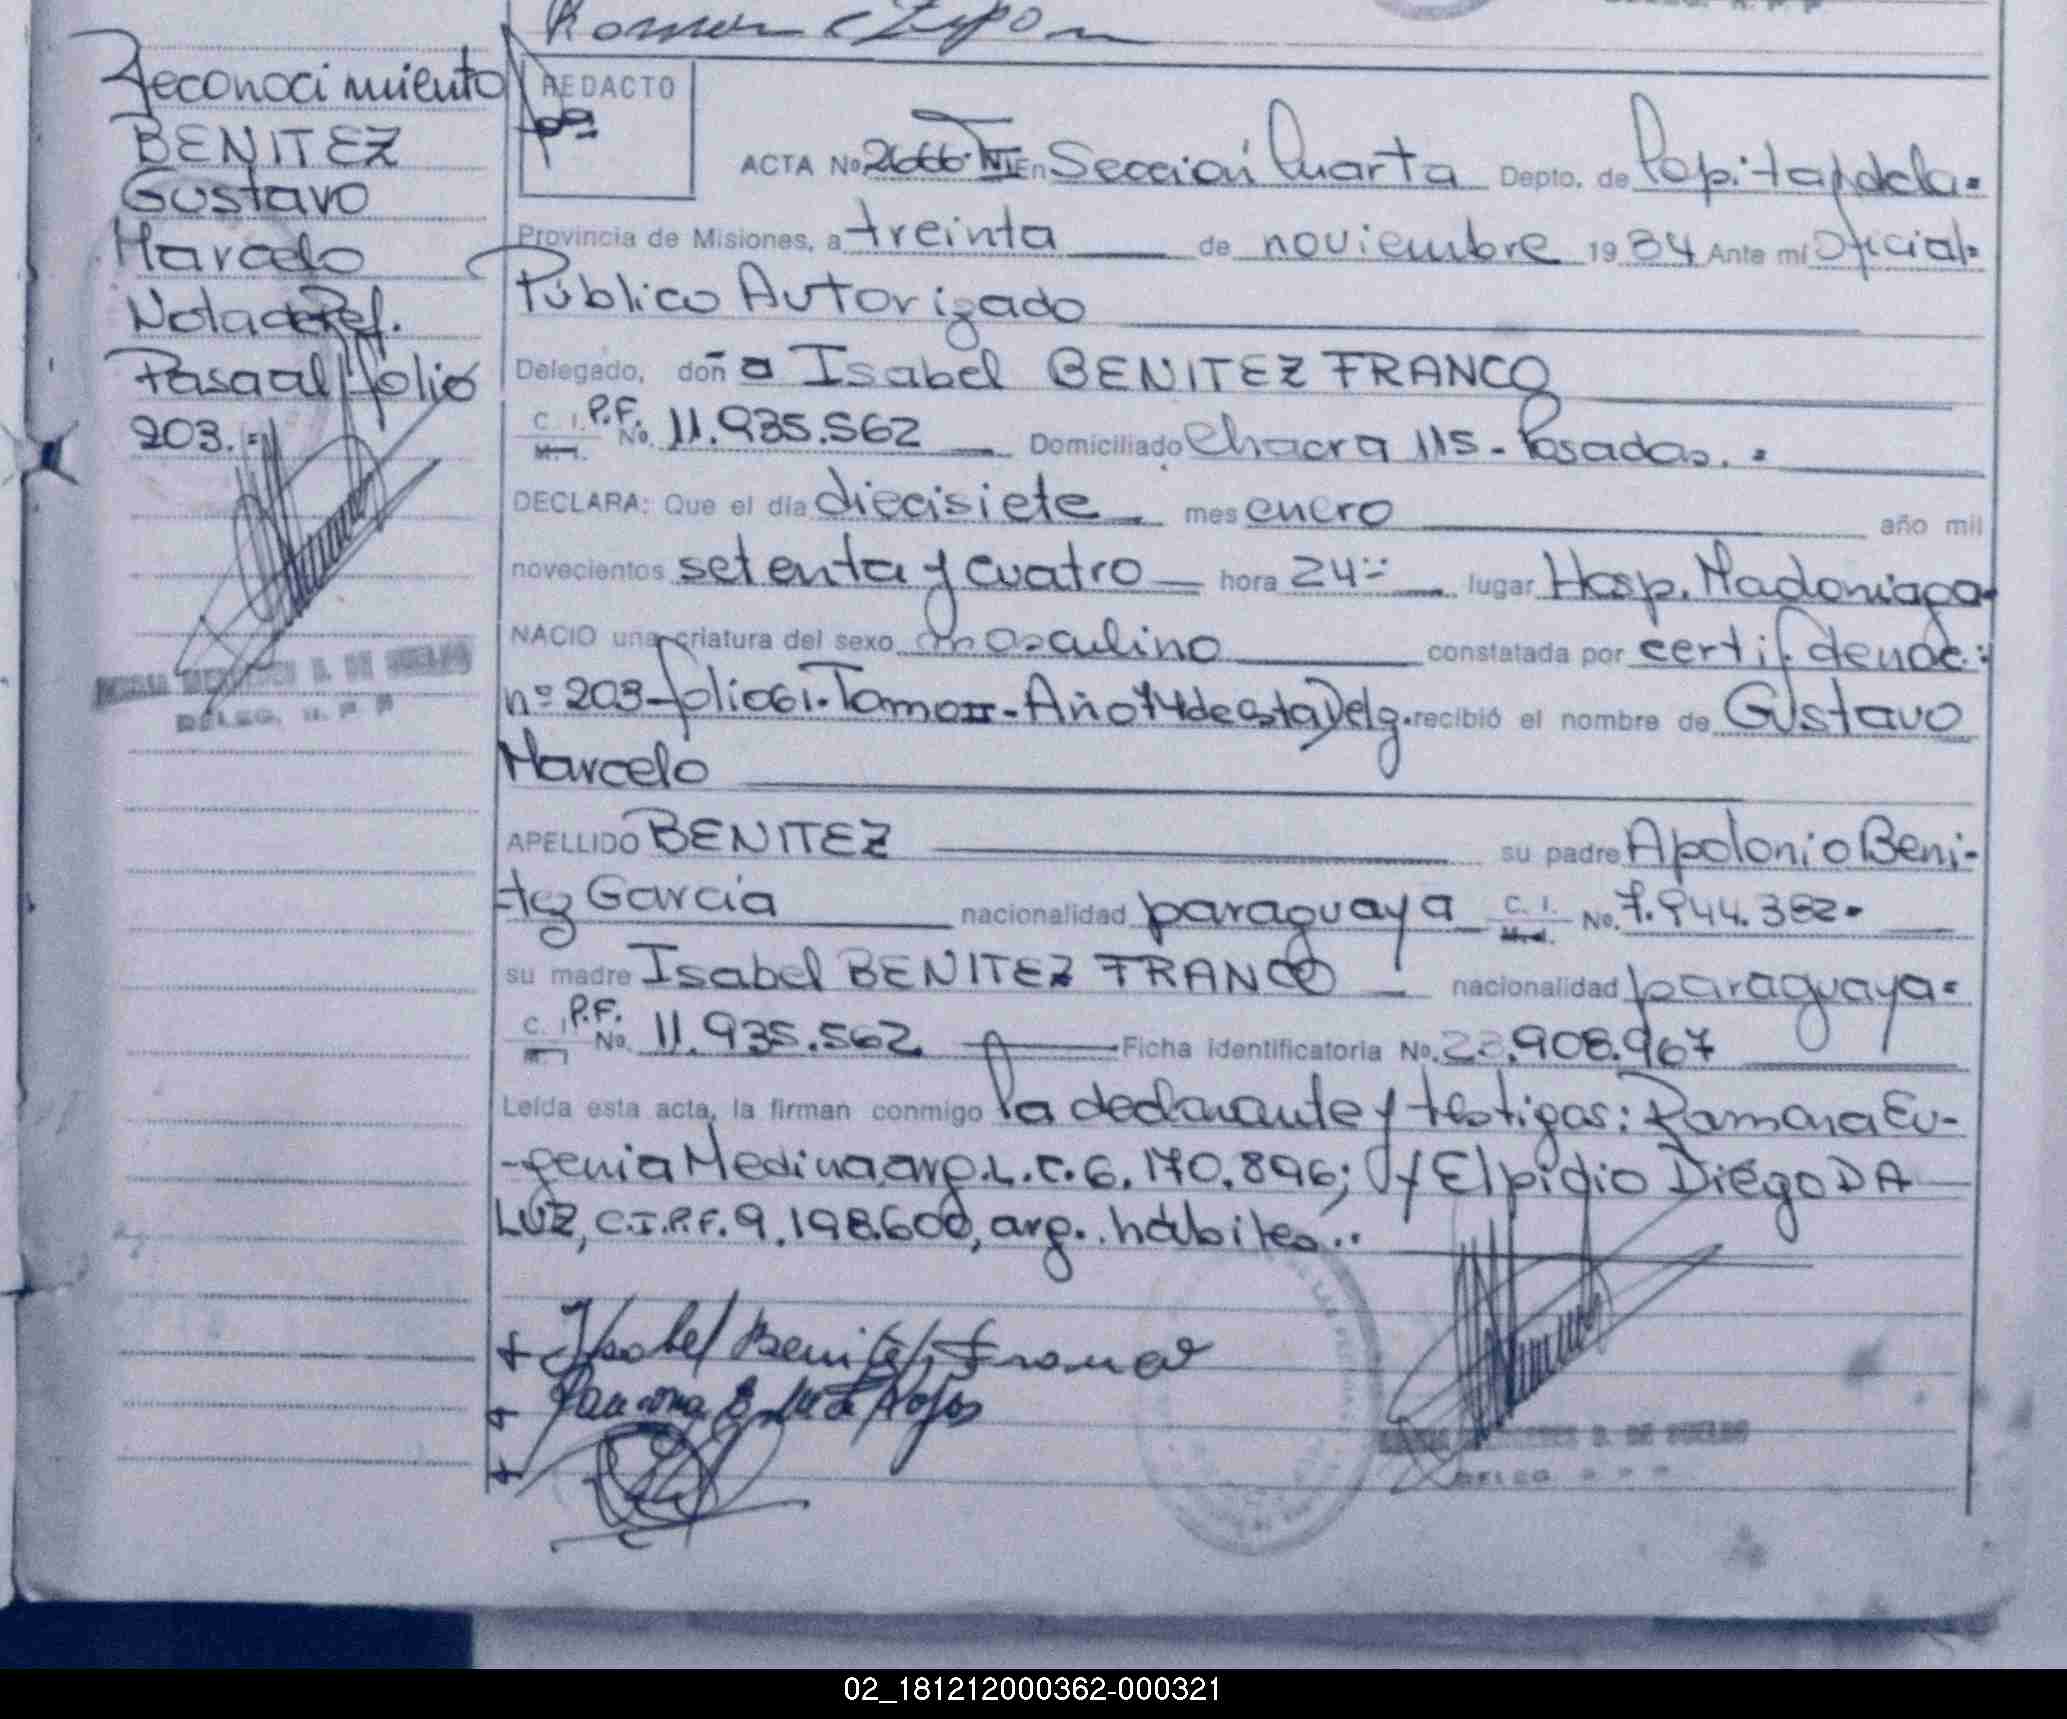 Reconocimiento
BENITEZ
Gustavo
Marcelo
Nota de Ref.
Pasa al folio
203.=
DELEG. R. P. P
REDACTO
ACTA No 2666. En Sección Cuarta Depto. de Capital, de la.
Provincia de Misiones, a treinta de noviembre 1984 Ante mí Oficial.
Público Autorizado
Delegado, doña Isabel BENITEZ FRANCO
C. I. P.F. No. 11.935.562 Domiciliado Chacra 115 - Posadas. .
DECLARA: Que el día diecisiete mes enero año mil
novecientos setenta y cuatro hora 24 lugar Hosp. Madariaga.
NACIO una criatura del sexo masculino constatada por certif. de nac.:
nº 203-folio 61. Tomo II - Año 74 de esta Delg. recibió el nombre de Gustavo
Marcelo
APELLIDO BENITEZ su padre Apolonio Beni-
tez Garcia nacionalidad paraguaya C. I. M.I. No. 7.944.382.
su madre Isabel BENITEZ FRANCO nacionalidad paraguaya.
C. I. P.F. No. 11.935.562 Ficha Identificatoria No. 23.908.967
Leída esta acta, la firman conmigo la declarante y testigos: Ramona Eu-
-genia Medina, arg. L.C. 6.170.896; y Elpidio Diego DA
LUZ, C.I.P.F. 9.198.600, arg. hábiles..
Isabel Benitez Franco
Ramona E. M de Rojas
DELEG.
02_181212000362-000321